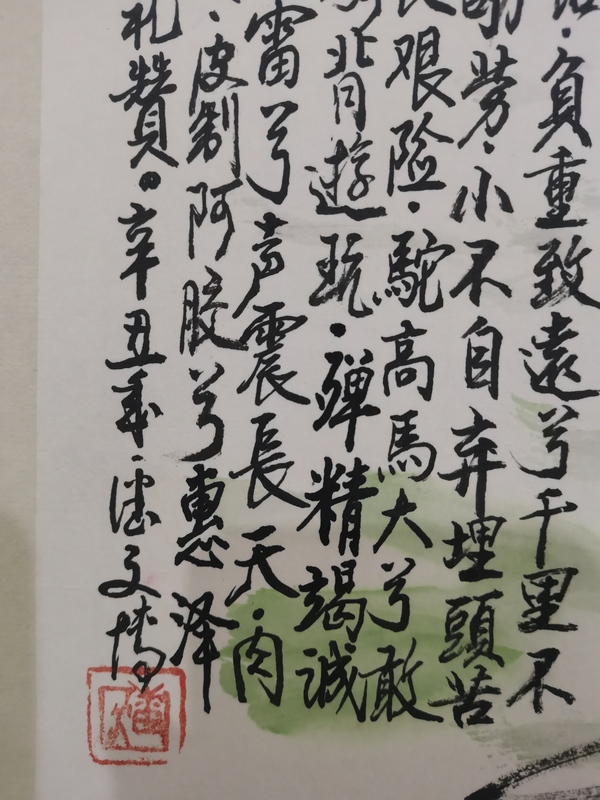 负重致遠兮千里不
劳·小不自弃埋頭苦
艰险·駝高馬大兮敢
背遊玩·殫精竭诚
雷兮声震長天·肉
·皮制阿胶兮惠泽
礼贊。辛丑年·潘文博